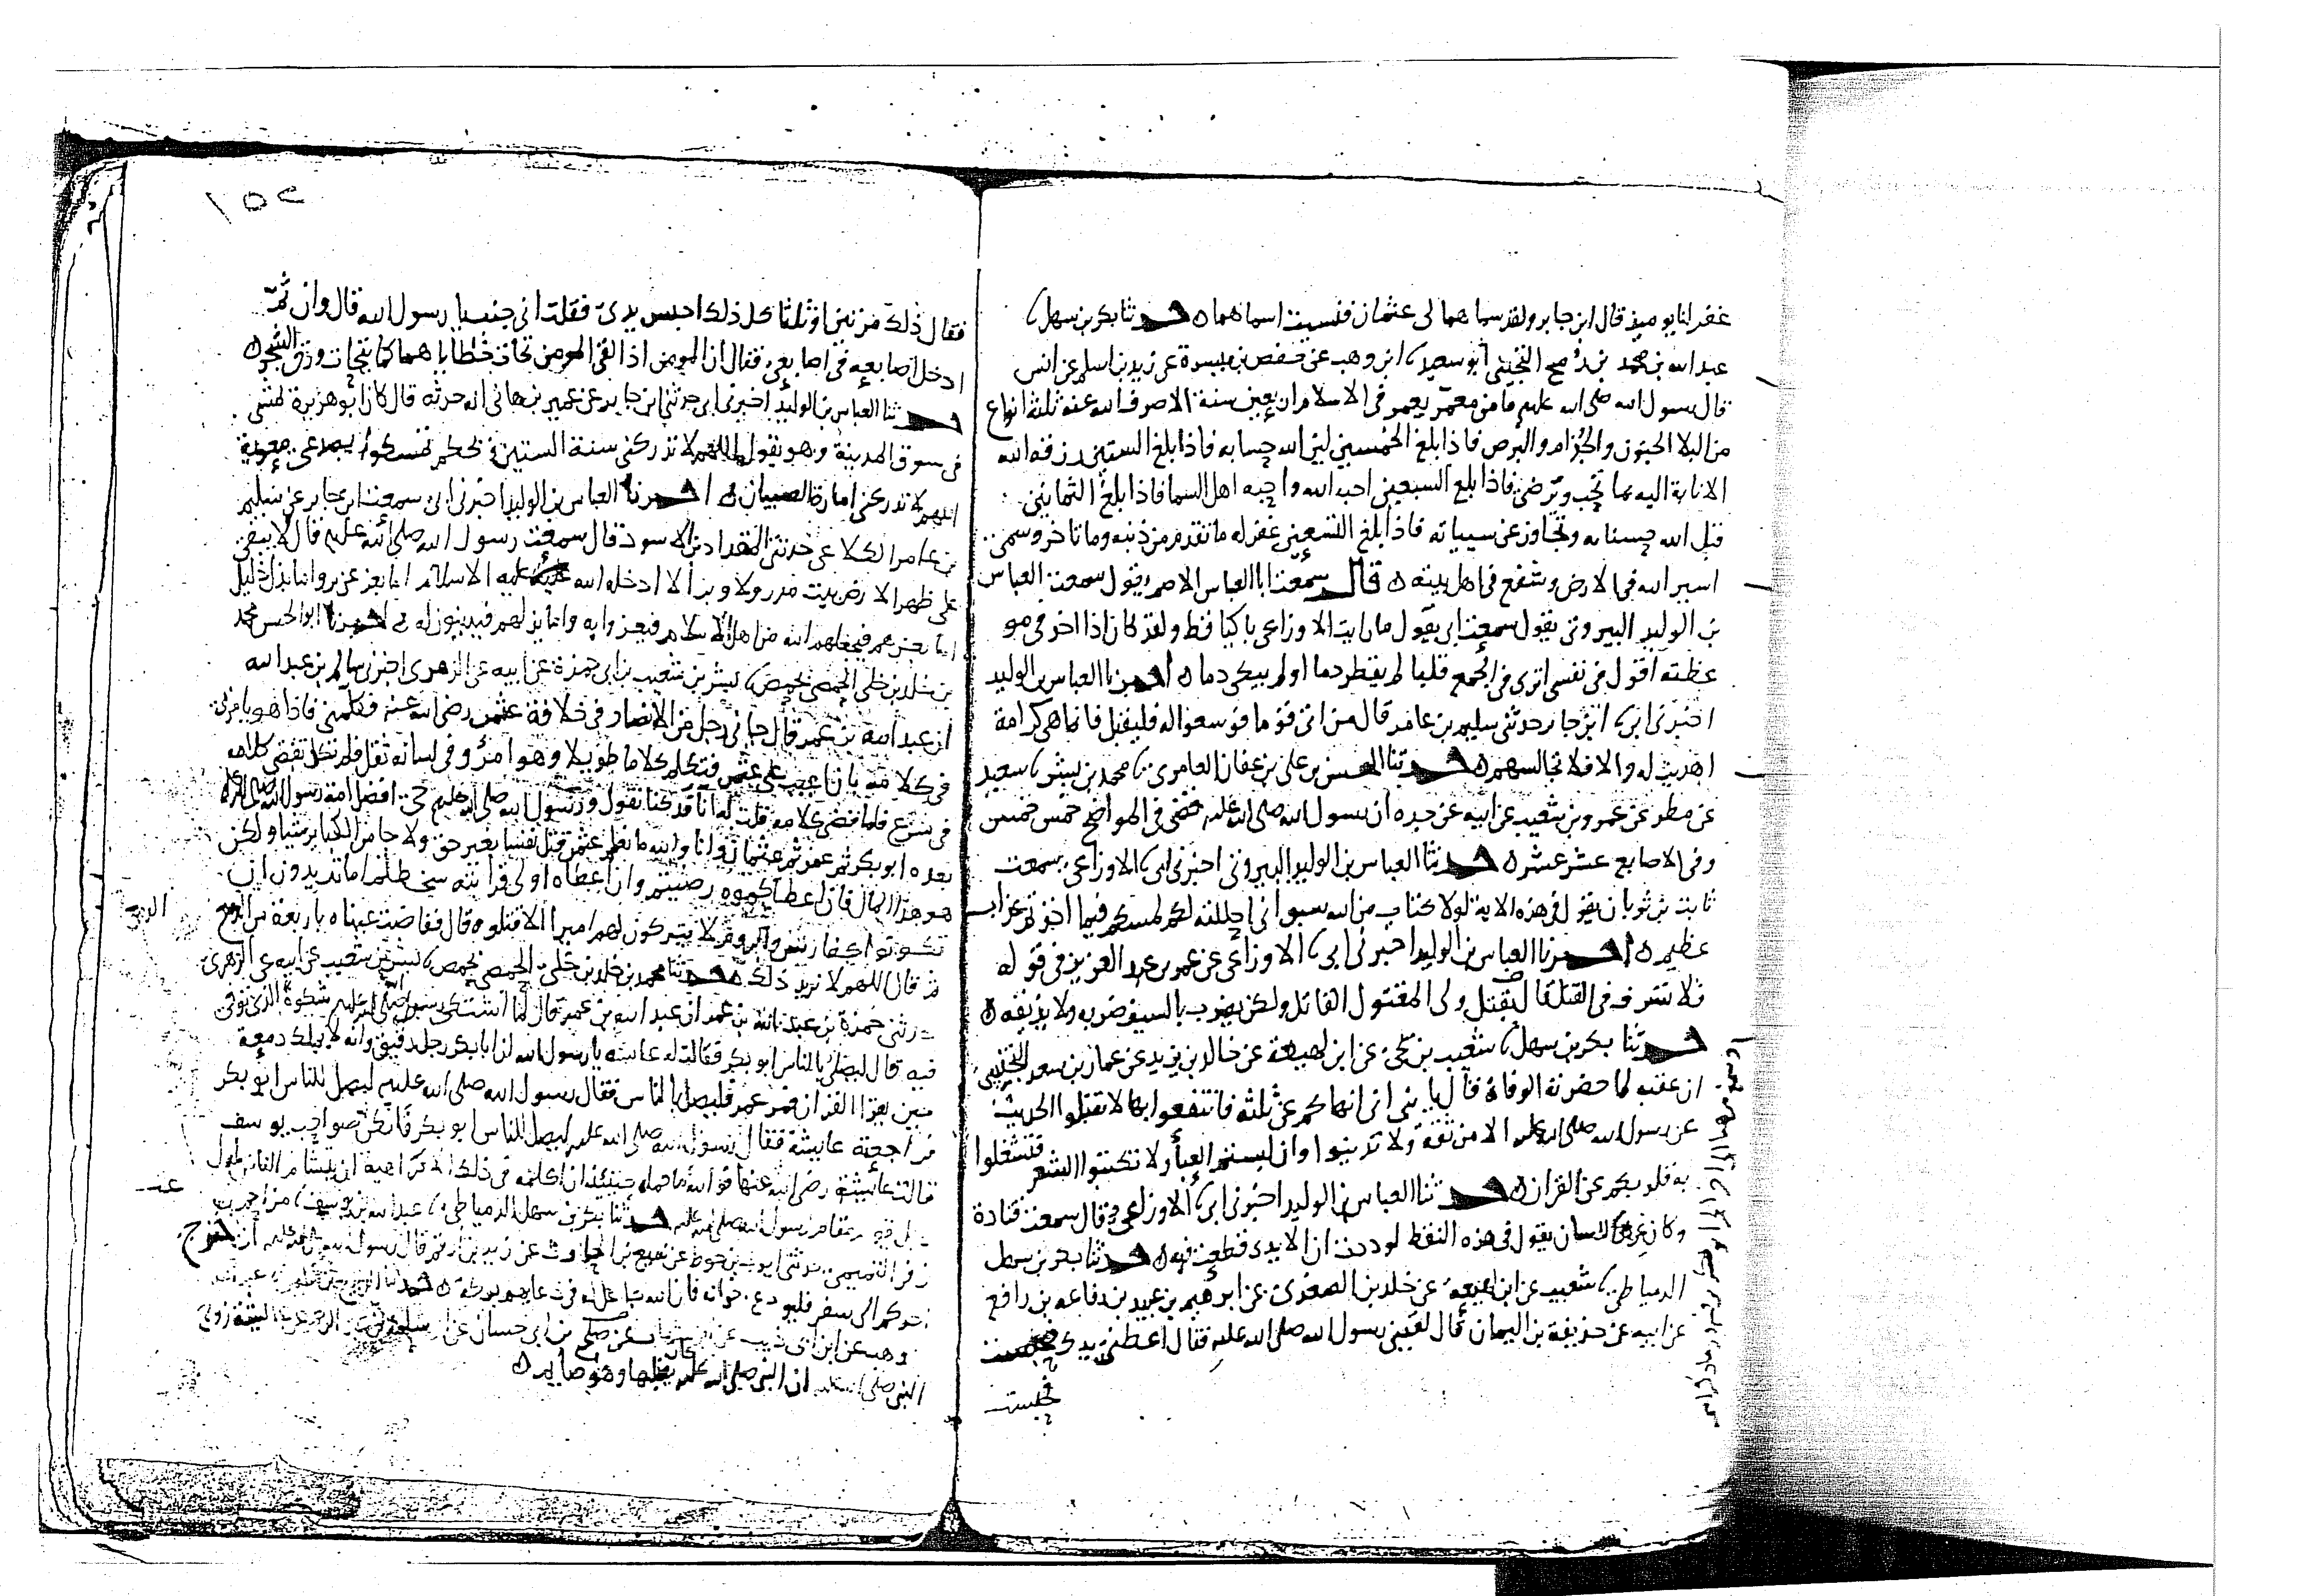 غفر لنا يوميذ قال ابن جابر ولقد سماهما لي عثمان فنسيت اسماهما ه حدثنا بكر بن سهل
عبد الله بن محمد بن رمح التجيبي ابو سعيد ابن وهب عن حفص بن ميسرة عن زيد بن اسلم عن انس
قال رسول الله صلى الله عليه ما من معمر يعمر في الاسلام اربعين سنة الا صرف الله عنه ثلثة انواع
من البلا الجنون والجذام والبرص فاذا بلغ الخمسين لين الله حسابه فاذا بلغ الستين رزقه الله
الانابة اليه بما تحب وترضى فاذا بلغ السبعين احبه الله واحبه اهل السما فاذا بلغ الثمانين
قبل الله حسناته وتجاوز عن سيياته فاذا بلغ التسعين غفر له ما تقدم من ذنبه وما تاخر وسمي
اسير الله في الارض وشفع في اهل بيته ه قال سمعت ابا العباس الاصم يقول سمعت العباس
بن الوليد البيروتي يقول سمعت ابي يقول ما رايت الاوزاعي باكيا قط ولقد كان اذا اخذ في مو
عظته اقول في نفسي اترى في الجمع قلبا لم يقطر دما او لم يبكي دما ه اخبرنا العباس بن الوليد
اخبرني ابي ابن جابر حدثني سليم بن عامر قال من اتى قوما فوسعوا له فليقبل فانما هي كرامة
اهديت له والا فلا تجالسهم ه حدثنا الحسن بن علي بن عفان العامري محمد بن بشر سعيد
عن مطر عن عمرو بن شعيب عن ابيه عن جده ان رسول الله صلى الله عليه قضى في المواضح خمس خمس
وفي الاصابع عشر عشر ه حدثنا العباس بن الوليد البيروتي اخبرني ابي الاوزاعي سمعت
ثابت بن ثوبان يقول في هذه الاية لولا كتاب من الله سبق اني احللته لكم لمسكم فيما اخذتم عذاب
عظيم ه اخبرنا العباس بن الوليد اخبرني ابي الاوزاعي عن عمر بن عبد العزيز في قوله
فلا تسرف في القتل قال يقتل ولي المقتول القاتل ولكن يضرب بالسيف ضربه ولا يذيقه ه
حدثنا بكر بن سهل شعيب بن يحيى عن ابن لهيعة عن خالد بن يزيد عن عمار بن سعد التجيبي
ان عقبة لما حضرته الوفاة قال يا بني اني انهاكم عن ثلثة فانتفعوا بها لا تقبلوا الحديث
عن رسول الله صلى الله عليه الا من ثقة ولا تدينوا وان لبستم العبا ولا تكتبوا الشعر فتشغلوا
به قلوبكم عن القران ه حدثنا العباس بن الوليد اخبرني ابي الاوزاعي قال سمعت قتادة
وكان يقول في هذه النقط لوددت ان الايدي قطعت فيه ه حدثنا بكر بن سهل
الدمياطي شعيب عن ابن لهيعة عن خلد بن الصغدي عن ابرهيم بن عبيد بن رفاعه بن رافع
عن ابيه عن حذيفة بن اليمان قال لقيني رسول الله صلى الله عليه فقال اعطني يدك فحبست
فحبست
١٥٢
فقال ذلك مرتين او ثلثا كل ذلك احبس يدي فقلت اني جنب يا رسول الله قال وان ثم
ادخل اصابعه في اصابعي فقال ان المومن اذا لقي المومن تحات خطاياهما كما يتحات ورق الشجر ه
حدثنا العباس بن الوليد اخبرني ابي حدثني ابن جابر عن عمير بن هاني انه حدثه قال كان ابو هريرة يمشي
في سوق المدينة وهو يقول اللهم لا تدركني سنة الستين ويحكم تمسكوا بصدغي معوية
اللهم لا تدركني امارة الصبيان ه اخبرنا العباس بن الوليد اخبرني ابي سمعت ابن جابر عن سليم
بن عامر الكلاعي حدثني المقداد بن الاسود قال سمعت رسول الله صلى الله عليه قال لا يبقى
على ظهر الارض بيت مدر ولا وبر الا ادخله الله عليه الاسلام اما بعز عزيز واما بذل ذليل
اما يعزهم فيجعلهم الله من اهل الاسلام فيعزوا به واما يذلهم فيدينون له اخبرنا ابو الحسن محمد
بن خلد بن خلي الحمصي بحمص بشر بن شعيب بن ابي حمزة عن ابيه عن الزهري اخبرني سالم بن عبد الله
ان عبد الله بن عمر قال جاني رجل من الانصار في خلافة عثمن رضي الله عنه فكلمني فاذا هو يامرني
في كلامه بان اعيب على عثمن فتكلم كلاما طويلا وهو امرؤ في لسانه ثقل فلم يكد يقضي كلامه
في سرع فلما قضى كلامه قلت له انا قد كنا نقول ورسول الله صلى الله عليه حي افضل امة رسول الله صلى الله عليه
بعده ابو بكر ثم عمر ثم عثمان وانا والله ما نعلم عثمن قتل نفسا بغير حق ولا جا من الكباير شيا ولكن
هو هذا المال فان اعطاكموه رضيتم وان اعطاه اولي قرابته سخطتم انما تريدون ان
تكونوا كفارس والروم لا يتركون لهم اميرا الا قتلوه قال ففاضت عيناه باربعة من الدمع
ثم قال اللهم لا نريد ذلك ه حدثنا محمد بن خلد بن خلي الحمصي بحمص بشر بن شعيب عن ابيه عن الزهري
حدثني حمزة بن عبد الله بن عمر ان عبد الله بن عمر قال لما اشتكى رسول الله صلى الله عليه شكوه الذي توفي
فيه قال ليصلي بالناس ابو بكر فقالت له عايشة يا رسول الله ان ابا بكر رجل رقيق وانه لا يملك دمعه
حين يقرا القران فمر عمر فليصل بالناس فقال رسول الله صلى الله عليه ليصل للناس ابو بكر
فراجعته عايشة فقال رسول الله صلى الله عليه ليصل للناس ابو بكر فانكن صواحب يوسف
قالت عايشة رضي الله عنها فوالله ما حملني حينئذ ان اكلمه في ذلك الا كراهية ان يتشام الناس باول
رجل قام مقام رسول الله صلى الله عليه حدثنا بكر بن سهل الدمياطي عبد الله بن يوسف مزاحم بن
زفر التميمي حدثني ايوب بن خوط عن نفيع بن الحارث عن زيد بن ارقم قال رسول الله صلى الله عليه اذا خرج
احدكم الى سفر فليودع اخوانه فان الله جاعل له في دعايهم بركة ه
وهب عن ابن ابي ذيب عن صلح بن ابي حسان عن ابي سلمة بن عبد الرحمن عن عايشة زوج
النبي صلى الله عليه ان النبي صلى الله عليه كان يقبلها وهو صايم ه